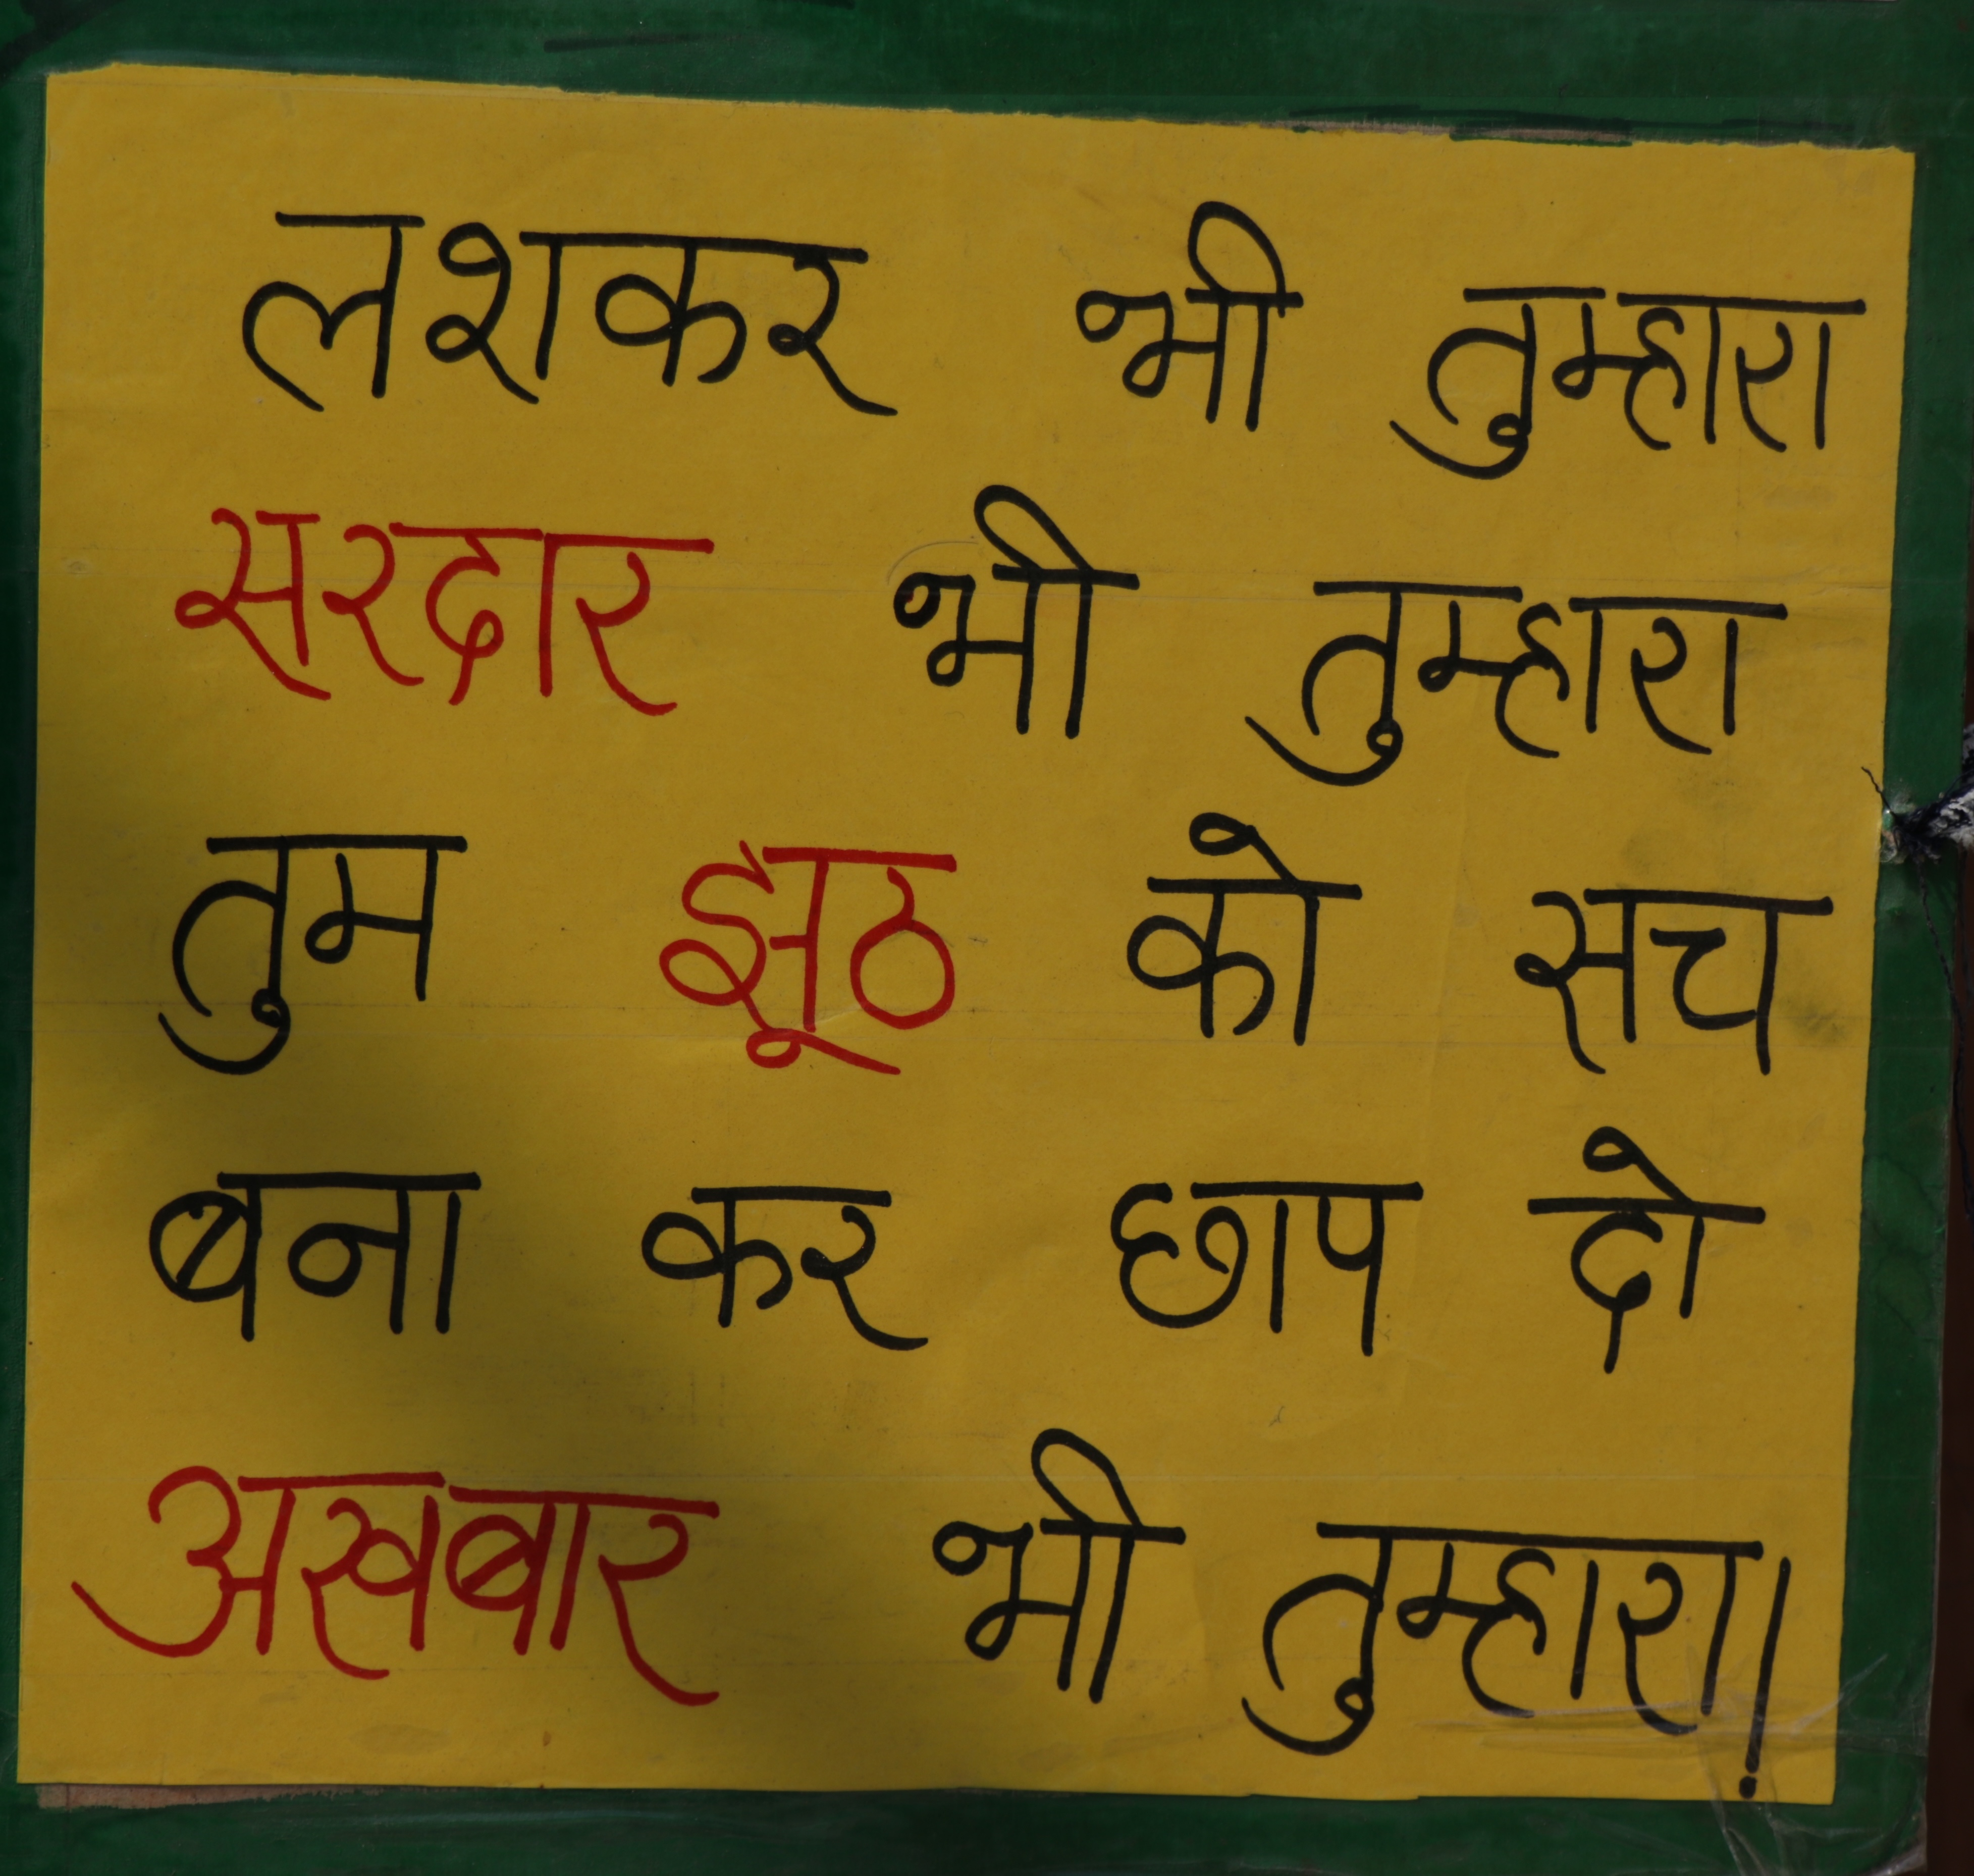 लशकर भी तुम्हारा
सरदार भी तुम्हारा
तुम झूठ को सच
बना कर छाप दो
अखबार भी तुम्हारा!